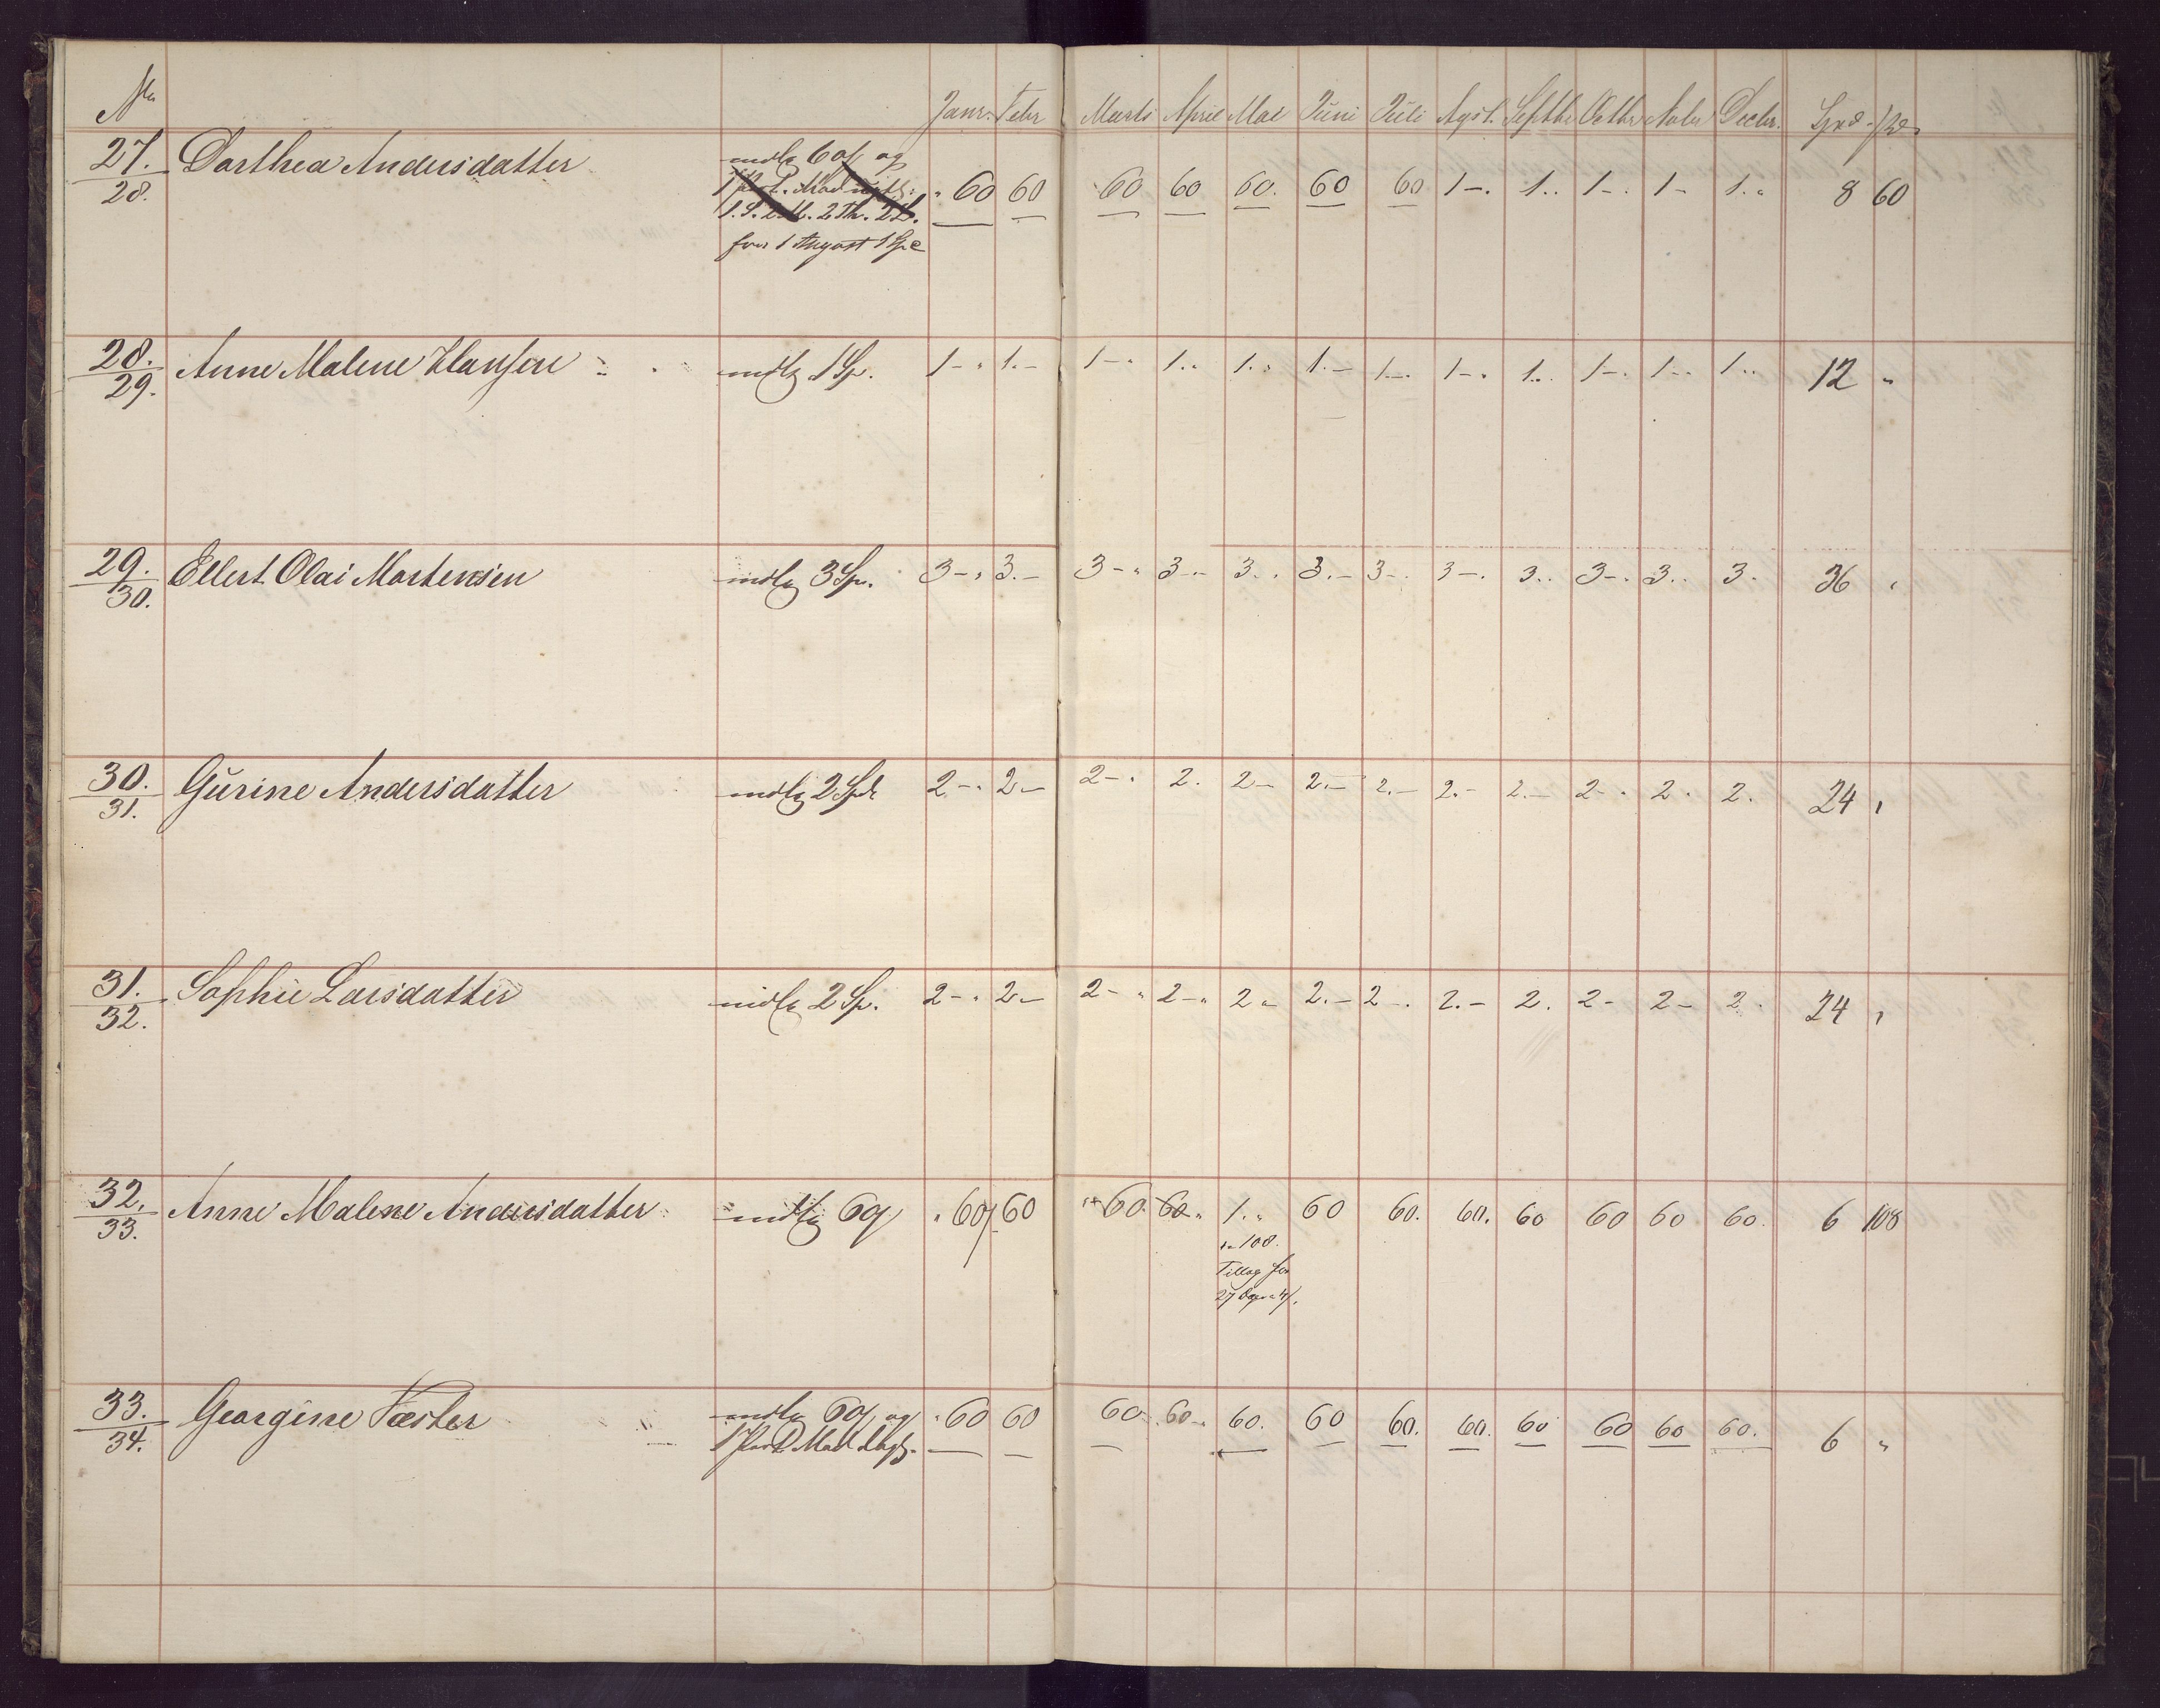 No Janr. Febr Marts April Mai Juni Juli Agst. Septbr Octbr Novbr Decbr. Spd. ß
27. Dorthea Andersdatter mdlg 60ß og
28. 1 Port. Mad " 60 60 60 60 60. 60 60 1 –. 1.. 1 –. 1 – 1.. 8 60
1. S. 2 M. 2 Th. 2 L.
fra 1 August 1 Spe
28. Anne Malene Hansen mdlg 1 Sp. 1 – " 1. – 1 – " 1.. 1.. 1. – 1 –. 1 –. 1.. 1 –. 1 –. 1.. 12 "
29.
29. Ellert Olai Mortensen mdlg 3 Sp. 3 – " 3. – 3 – " 3 – 3.. 3. – 3 –. 3 –. 3.. 3 –. 3.. 3. 36 "
30.
30. Gŭrine Andersdatter mdlg 2 Spd 2 –. 2 – 2 –. 2. 2 – 2. – 2. – 2. – 2. – 2 –. 2. 2. 24 "
31.
31. Sophie Larsdatter mdlg 2 Sp. 2 –. 2 – 2 – " 2 – " 2 – 2. – 2 –. 2. – 2. 2 – 2 – 2. 24 "
32.
32. Anne Malene Andersdatter mdlg 60ß " 60ß 60 60. 60 " 1. " 60 60. 60. 60 60 60 60. 6 108
33. 108.
Tillæg for
27 Dage a 4ß.
33. Georgine Væster mdlg 60ß og " 60 60 60 60 60. 60 60. 60. 60 60 60 60. 6 "
34. 1 Port Mad dagl.